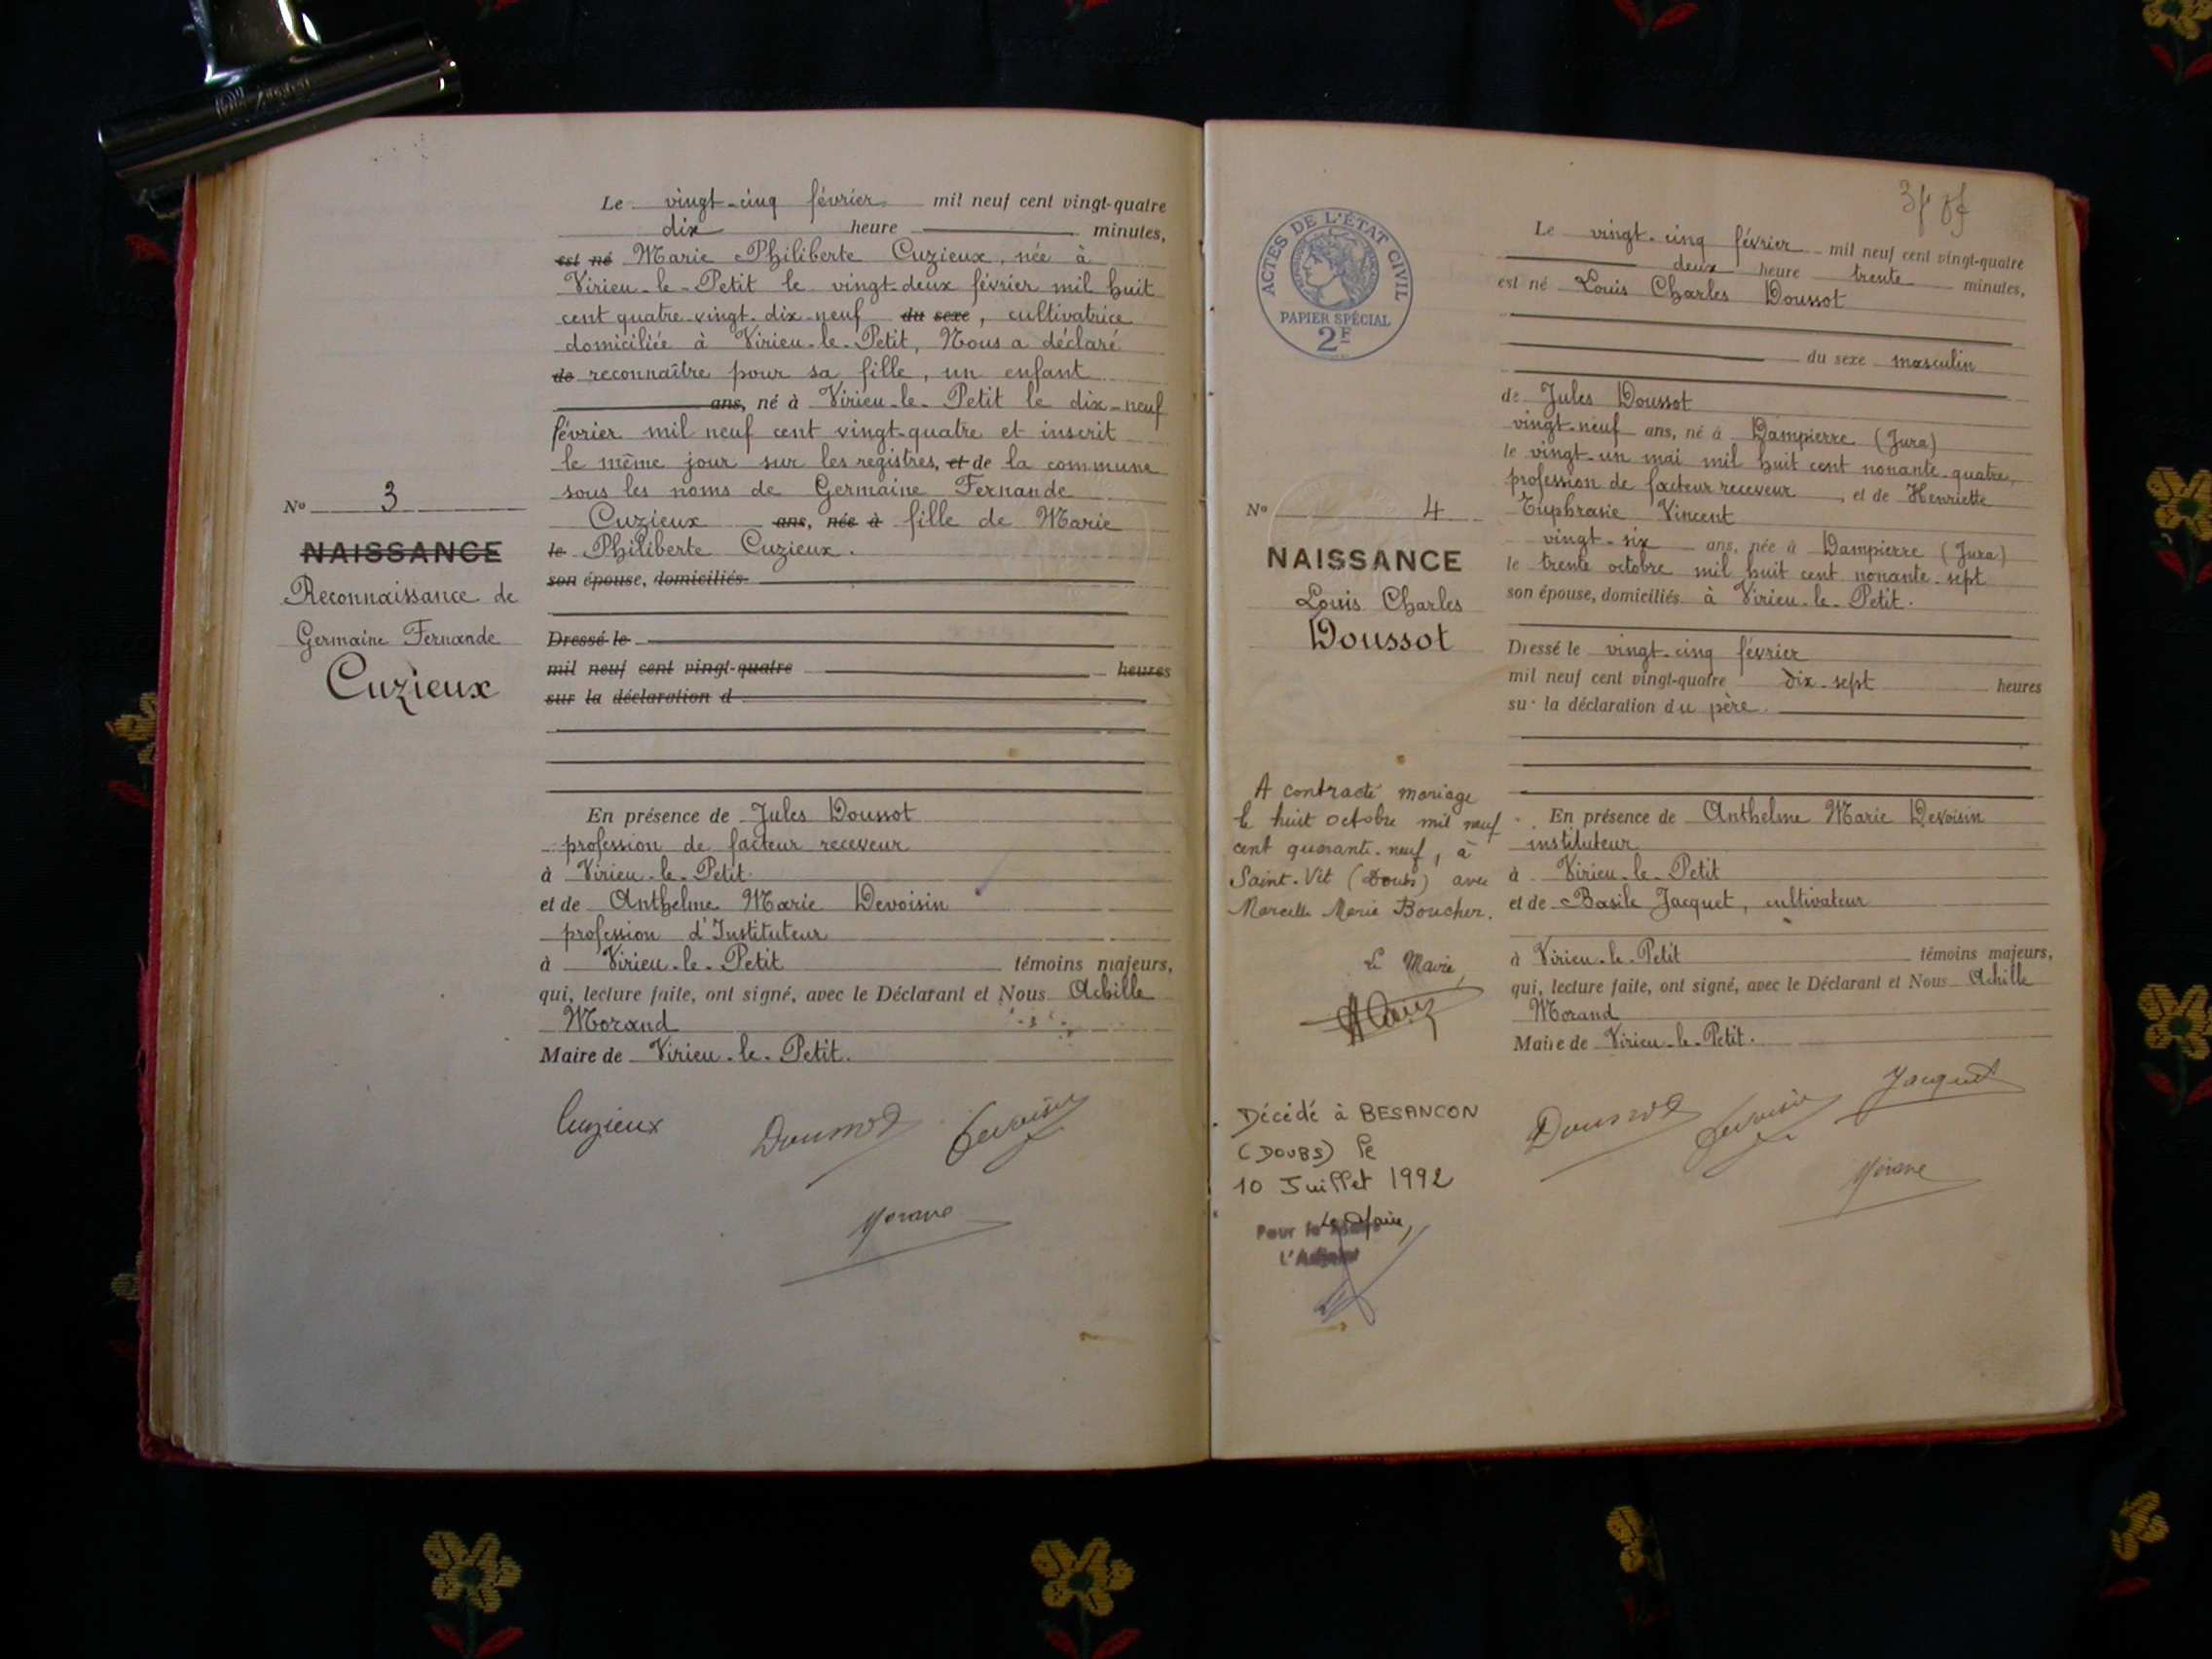 Le vingt-cinq février mil neuf cent vingt-quatre
dix heure minutes,
est né Marie Philiberte Cuzieux, née à
Virieu-le-Petit le vingt-deux février mil huit
cent quatre-vingt-dix-neuf du sexe, cultivatrice
domiciliée à Virieu-le-Petit, Nous a déclaré
de reconnaître pour sa fille, un enfant
ans, né à Virieu-le-Petit le dix-neuf
février mil neuf cent vingt-quatre et inscrit
le même jour sur les registres, et de la commune
sous les noms de Germaine Fernande
Cuzieux ans, née à fille de Marie
le Philiberte Cuzieux.
son épouse, domiciliés
Dressé le
mil neuf cent vingt-quatre heures
sur la déclaration d
No 3
NAISSANCE
Reconnaissance de
Germaine Fernande
Cuzieux
En présence de Jules Doussot
profession de facteur receveur
à Virieu-le-Petit
et de Anthelme Marie Devoisin
profession d'Instituteur
à Virieu-le-Petit témoins majeurs,
qui, lecture faite, ont signé, avec le Déclarant et Nous Achille
Morand
Maire de Virieu-le-Petit.
Cuzieux Doussot Devoisin
Morand
ACTES DE L'ÉTAT CIVIL
PAPIER SPÉCIAL
2F
Le vingt-cinq février mil neuf cent vingt-quatre
deux heure trente minutes,
est né Louis Charles Doussot
du sexe masculin
de Jules Doussot
vingt-neuf ans, né à Dampierre (Jura)
le vingt-un mai mil huit cent nonante-quatre,
profession de facteur receveur, et de Henriette
Euphrasie Vincent
vingt-six ans, née à Dampierre (Jura)
le trente octobre mil huit cent nonante-sept
son épouse, domiciliés à Virieu-le-Petit.
Dressé le vingt-cinq février
mil neuf cent vingt-quatre dix-sept heures
sur la déclaration du père.
No 4
NAISSANCE
Louis Charles
Doussot
A contracté mariage
le huit octobre mil neuf
cent quarante-neuf, à
Saint-Vit (Doubs) avec
Marcelle Marie Boucher.
Le Maire,
Décédé à BESANCON
(DOUBS) le
10 Juillet 1992
Le Maire,
Pour le Maire
L'Adjoint
En présence de Anthelme Marie Devoisin
instituteur
à Virieu-le-Petit
et de Basile Jacquet, cultivateur
à Virieu-le-Petit témoins majeurs,
qui, lecture faite, ont signé, avec le Déclarant et Nous Achille
Morand
Maire de Virieu-le-Petit.
Doussot Devoisin Jacquet
Morand